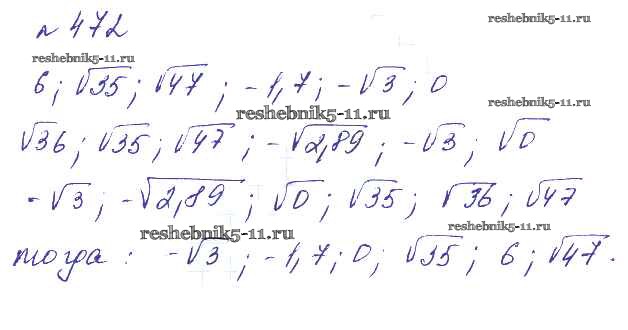 № 472
reshebnik5-11.ru
reshebnik5-11.ru
6; √35; √47; -1,7; -√3; 0
reshebnik5-11.ru
reshebnik5-11.ru
√36; √35; √47; -√2,89; -√3; √0
-√3; -√2,89; √0; √35; √36; √47
reshebnik5-11.ru
reshebnik5-11.ru
тогда: -√3; -1,7; 0; √35; 6; √47.